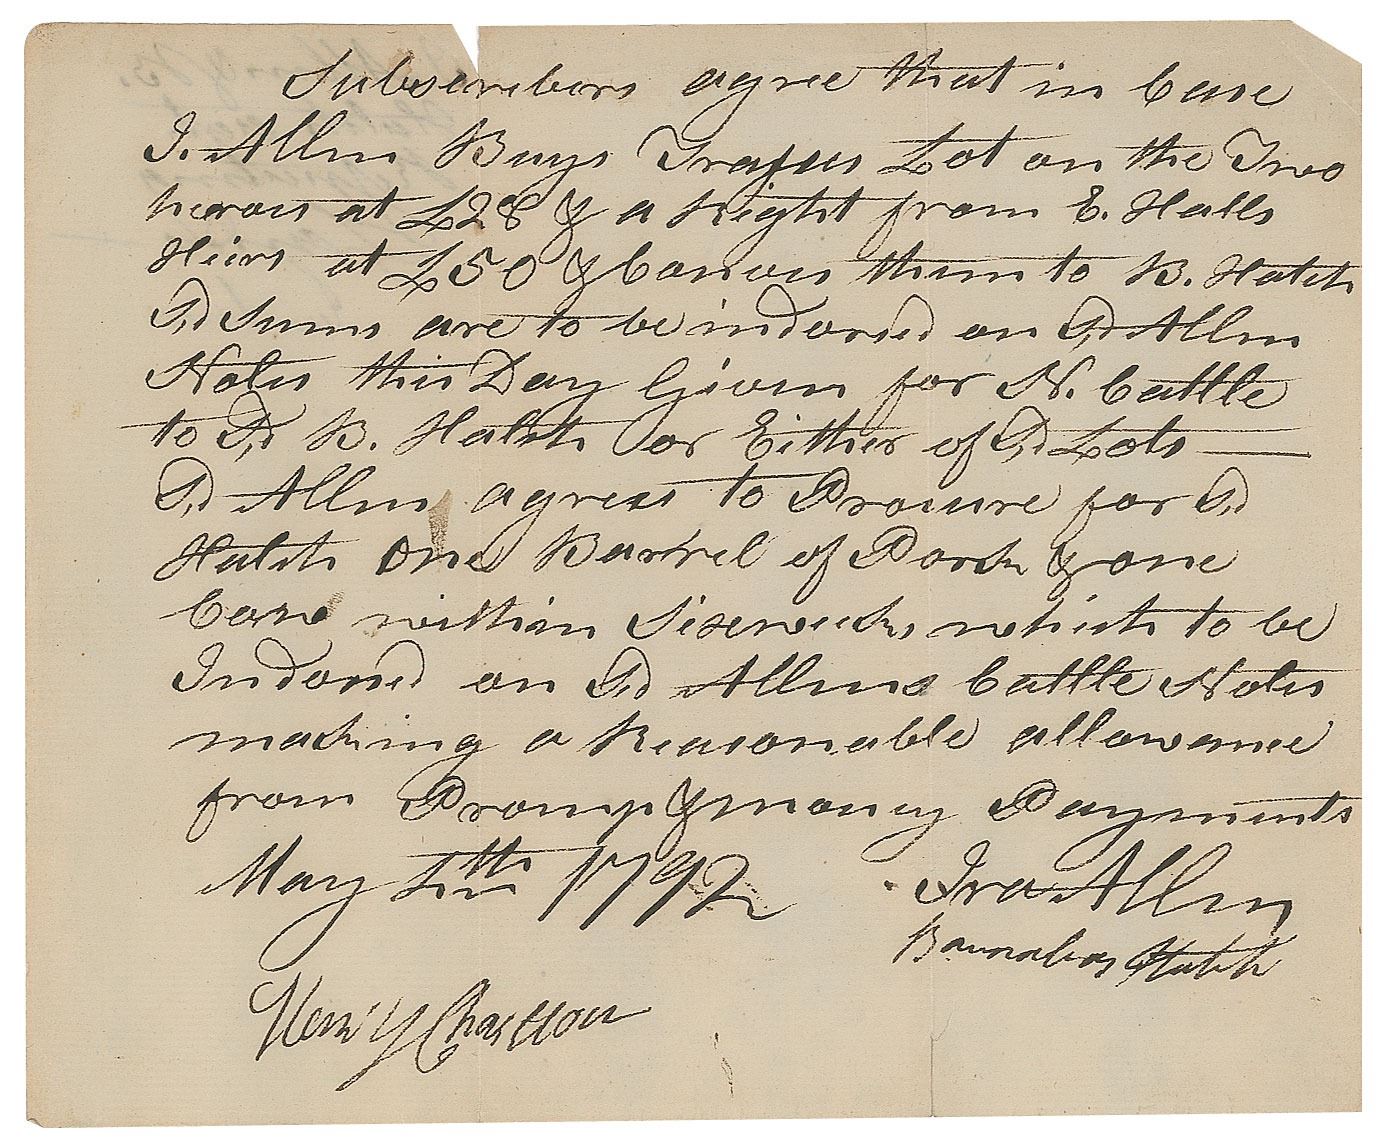 Subscribers agree that in Case
I. Allen Buys Lot on the Two
heroes at £28 & a Right from E. Halls
Heirs at £50 & Convers them to B. Hatch
Sd Sums are to be indorsed on Sd Allen
Notes this Day Given for N. Cattle
to Sd B. Hatch or Either of Sd Lots
Sd Allen agrees to Procure for Sd
Hatch One Barrel of Pork & one
Cow within Sixe weeks which to be
Indorsd on Sd Allens Cattle Notes
making a Reasonable allowance
from Promp & money Payments
May 4th 1792 Ira Allen
Barnabas Hatch
Henry